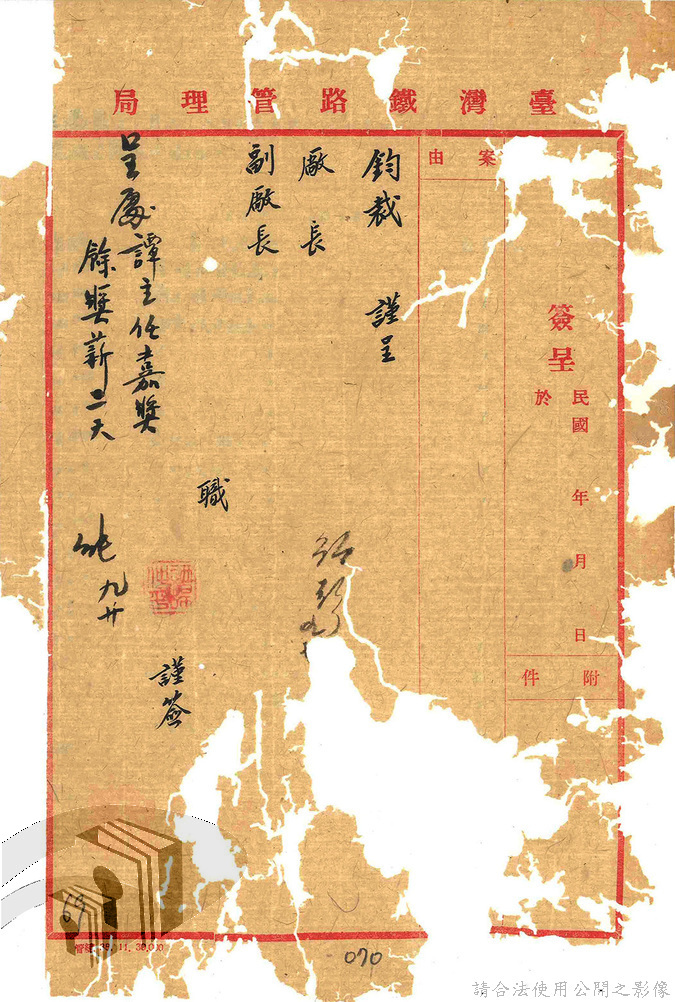 臺灣鐵路管理局
簽呈
民國 年 月 日
於
附件
案由
鈞裁 謹呈
廠長
副廠長
職
謹簽
呈處譚主任嘉獎
餘獎薪二天
九廿
69
070
請合法使用公開之影像